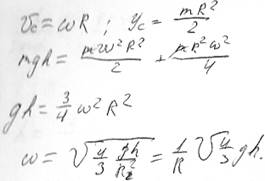 v_c = ωR ; y_c = mR²/2
mgh = mω²R²/2 + mR²ω²/4
gh = 3/4 ω²R²
ω = √(4/3 gh/R²) = 1/R √(4/3 gh).